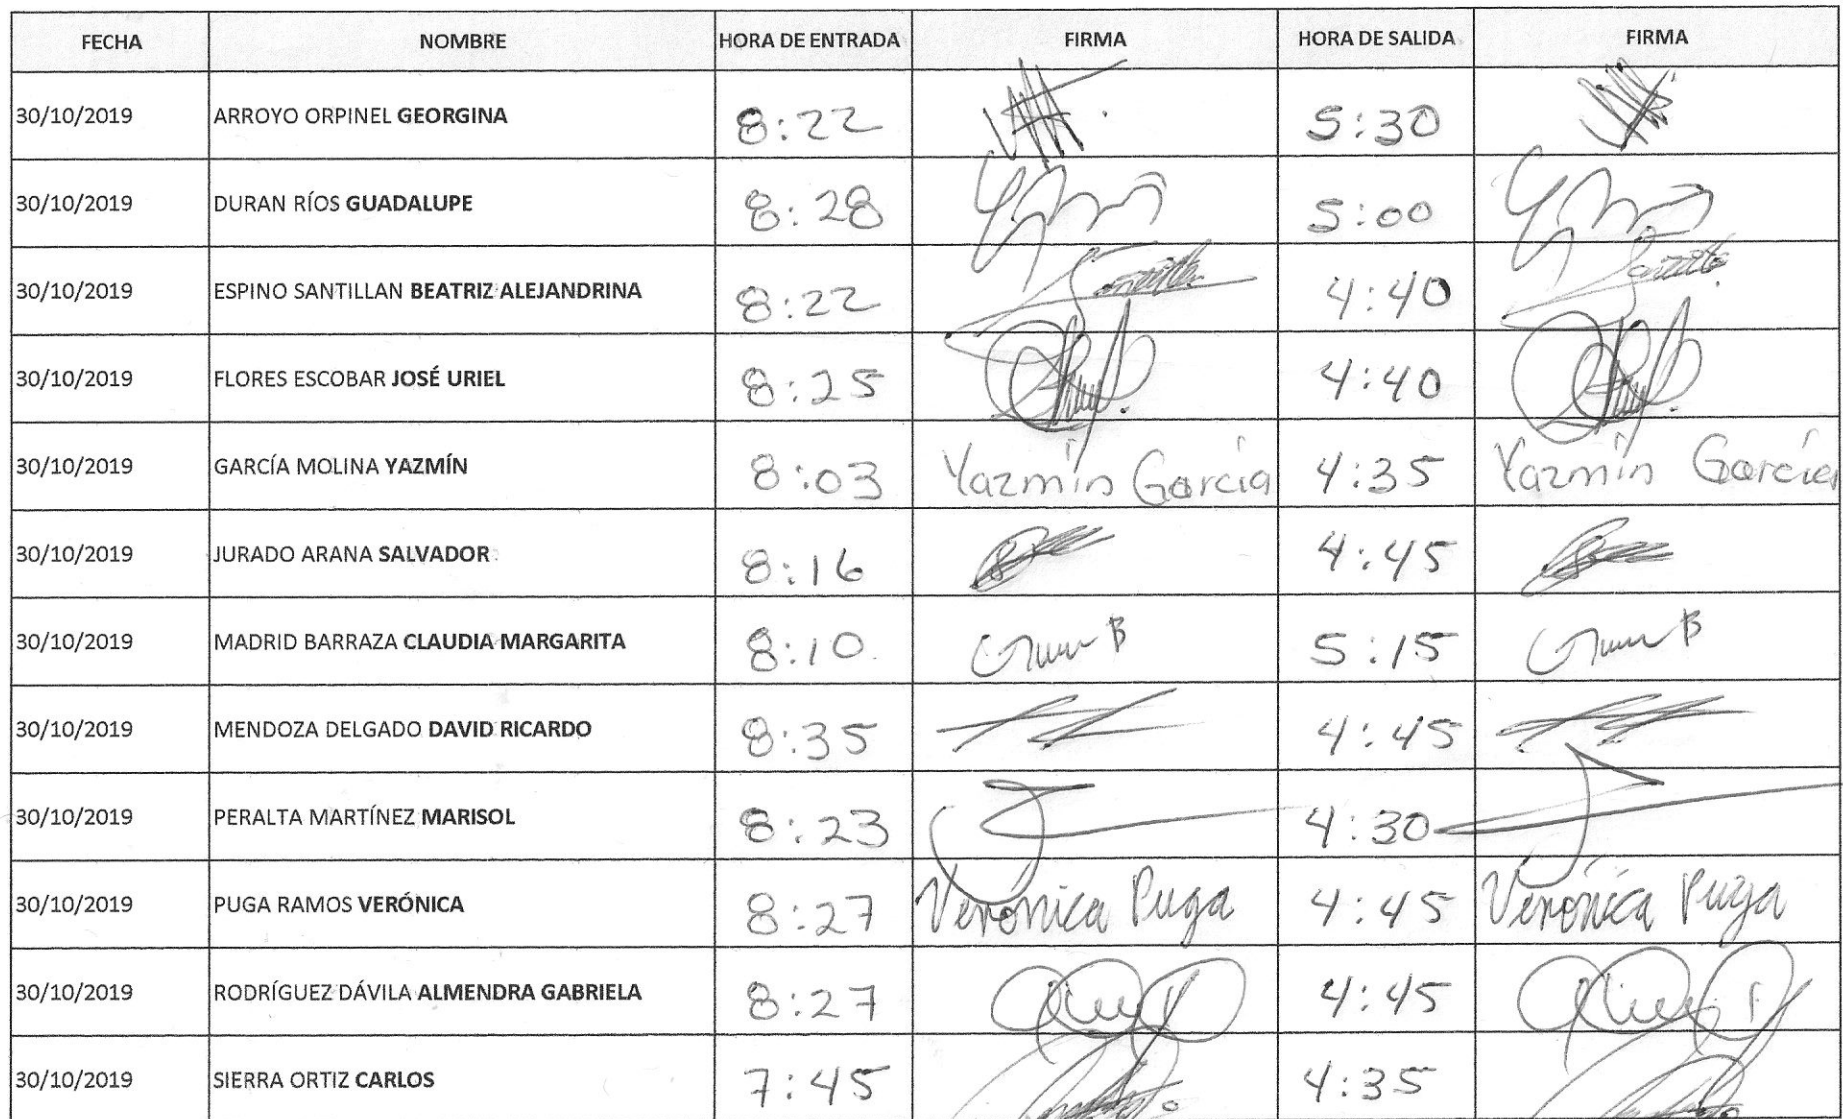 FECHA NOMBRE HORA DE ENTRADA FIRMA HORA DE SALIDA FIRMA
30/10/2019 ARROYO ORPINEL GEORGINA 8:22 5:30
30/10/2019 DURAN RÍOS GUADALUPE 8:28 5:00
30/10/2019 ESPINO SANTILLAN BEATRIZ ALEJANDRINA 8:22 4:40
30/10/2019 FLORES ESCOBAR JOSÉ URIEL 8:25 4:40
30/10/2019 GARCÍA MOLINA YAZMÍN 8:03 Yazmín García 4:35 Yazmín García
30/10/2019 JURADO ARANA SALVADOR 8:16 4:45
30/10/2019 MADRID BARRAZA CLAUDIA MARGARITA 8:10 5:15
30/10/2019 MENDOZA DELGADO DAVID RICARDO 8:35 4:45
30/10/2019 PERALTA MARTÍNEZ MARISOL 8:23 4:30
30/10/2019 PUGA RAMOS VERÓNICA 8:27 Verónica Puga 4:45 Verónica Puga
30/10/2019 RODRÍGUEZ DÁVILA ALMENDRA GABRIELA 8:27 4:45
30/10/2019 SIERRA ORTIZ CARLOS 7:45 4:35